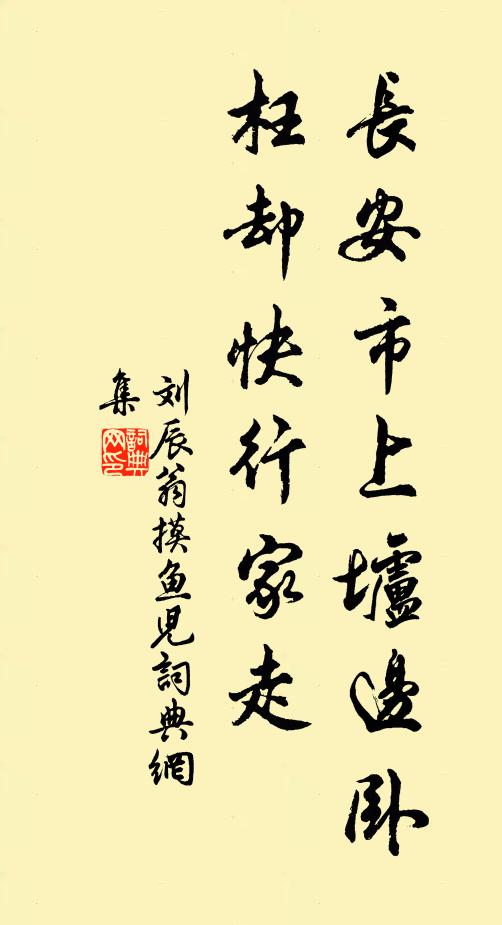 長安市上壚邊卧
枉却快行家走
刘辰翁摸鱼児詞典網
集
詞典網印